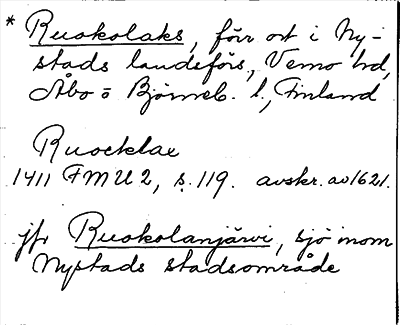 * Ruokolaks, förr ort i Ny-
stads landsförs., Vemo hd,
Åbo o Björneb. l., Finland
Ruocklax
1411 FMU 2, s. 119. avskr. av 1621.
jfr Ruokolanjärvi, sjö inom
Nystads stadsområde